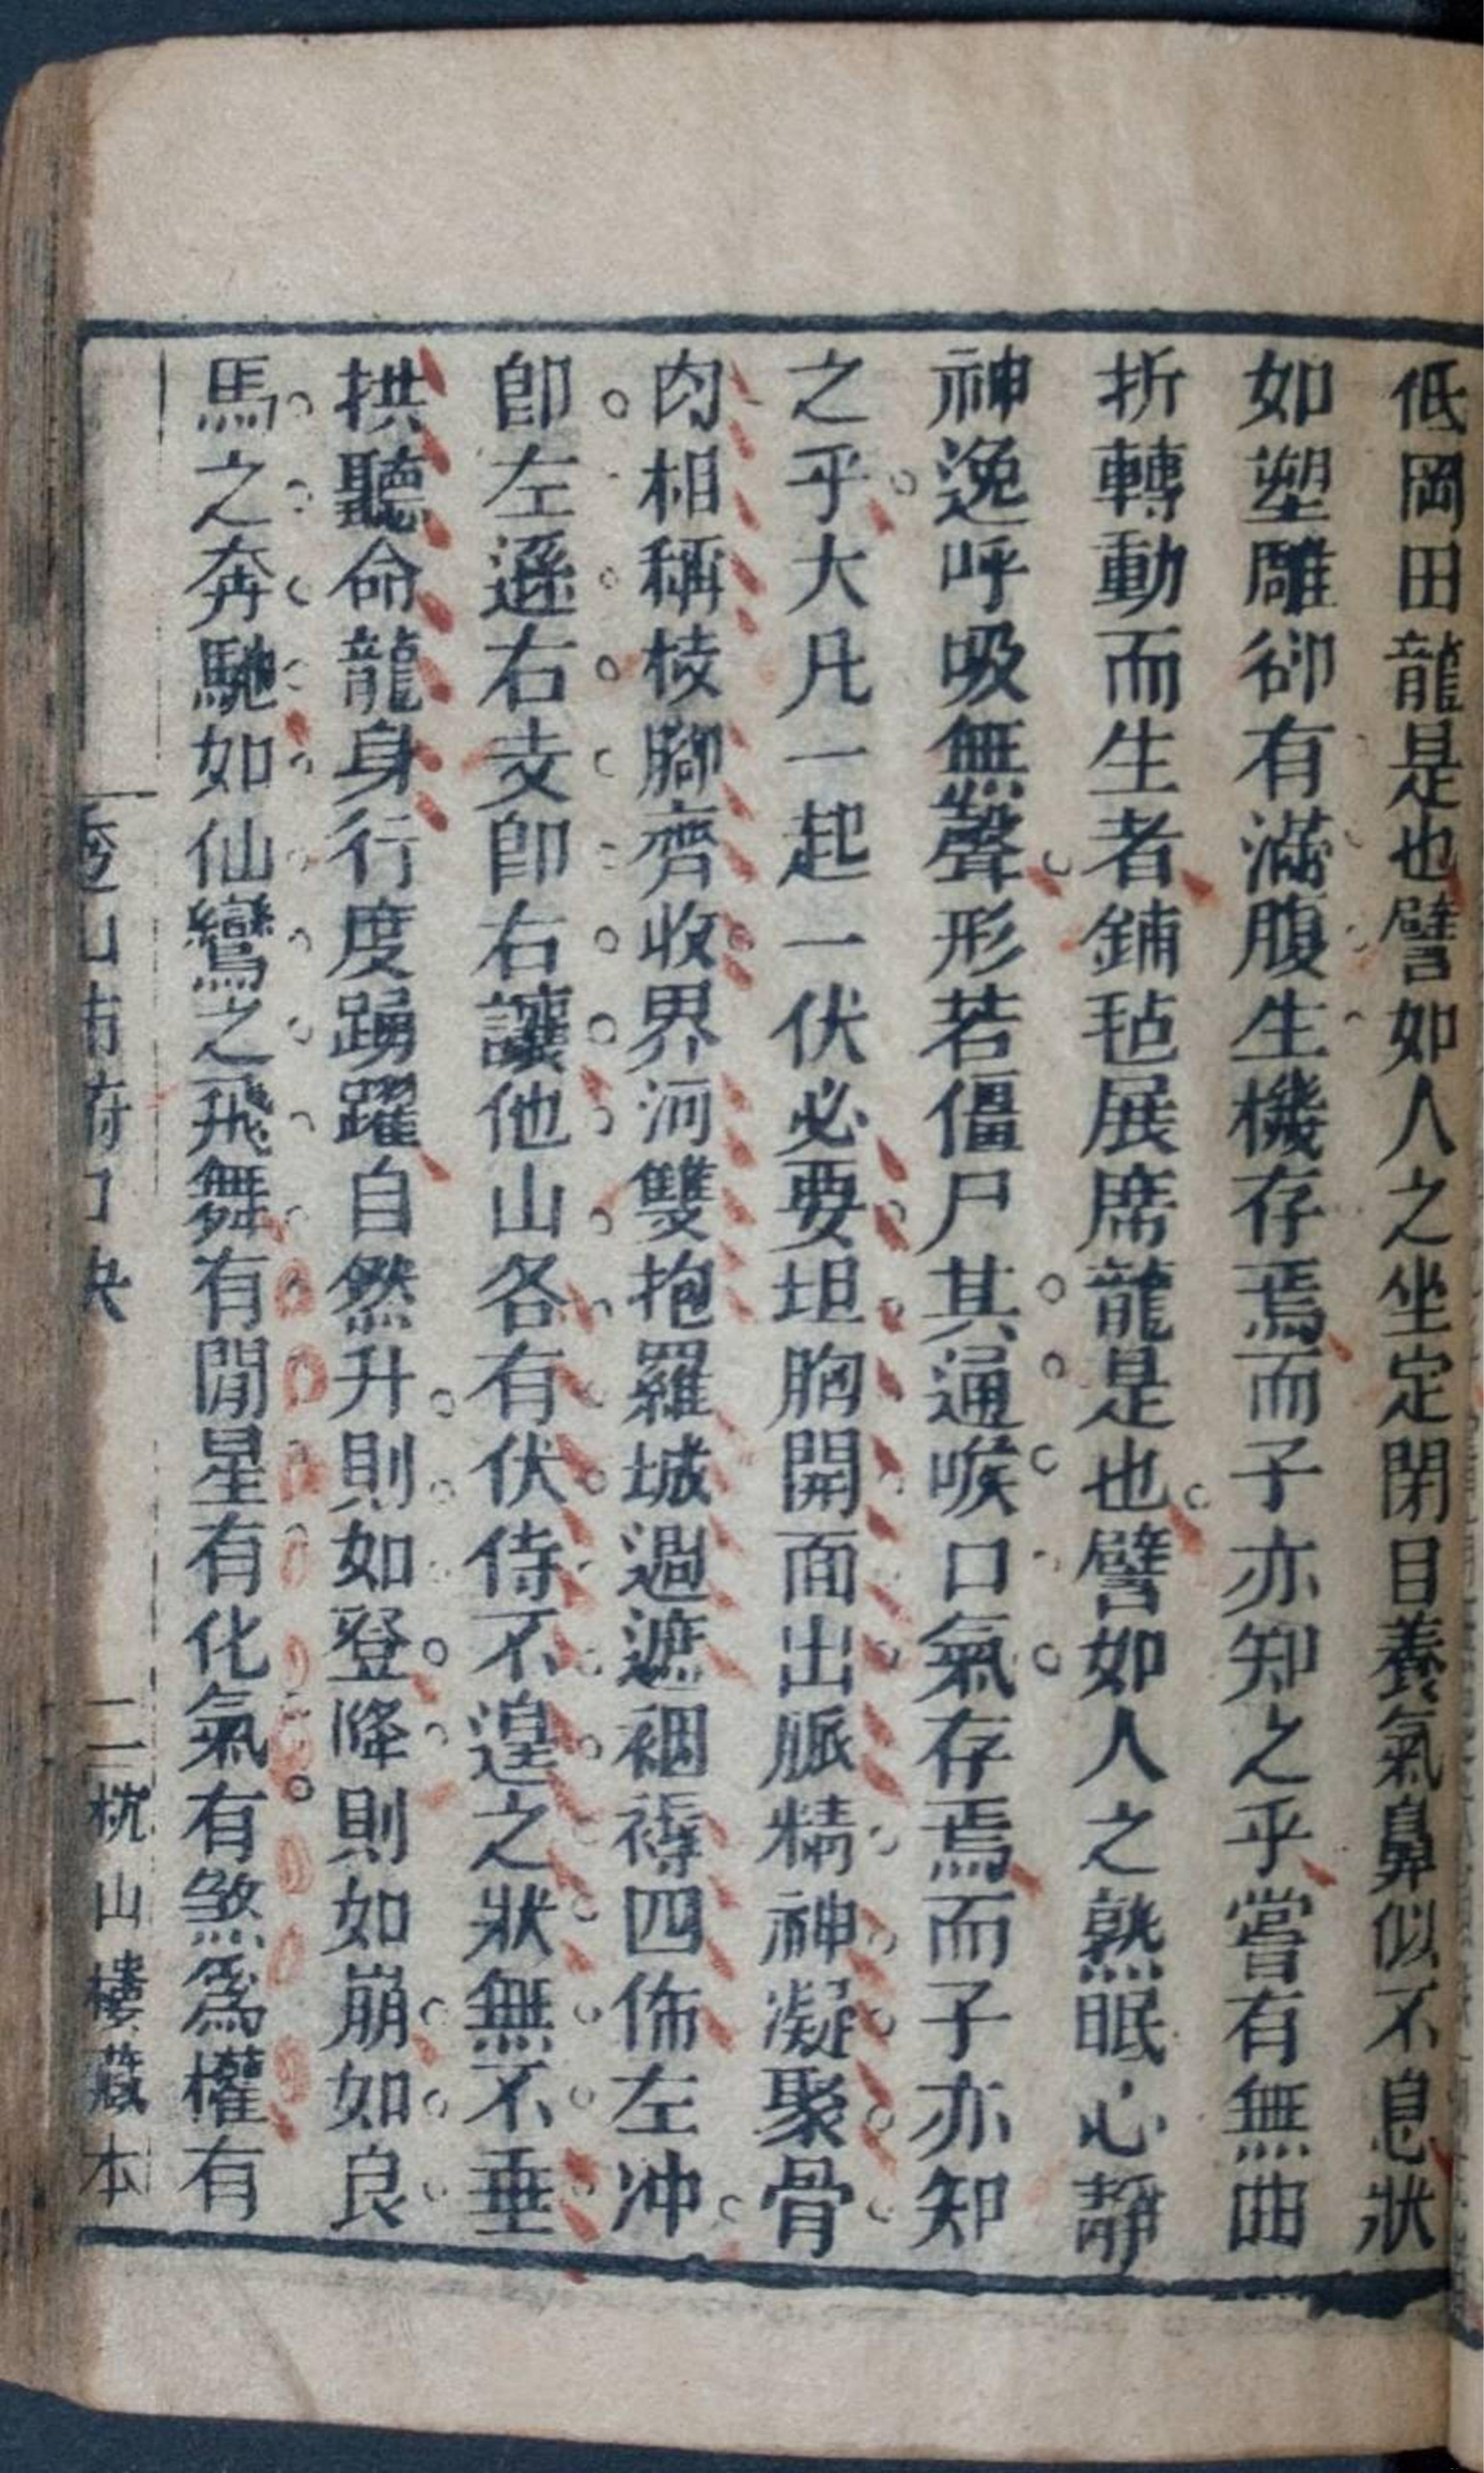 低岡田龍是也譬如人之坐定閉目養氣鼻似不息狀
如塑雕卻有滿腹生機存焉而子亦知之乎嘗有無曲
折轉動而生者鋪毡展席龍是也譬如人之熟眠心靜
神逸呼吸無聲形若僵尸其通喉口氣存焉而子亦知
之乎大凡一起一伏必要坦胸開面出脈精神凝聚骨
肉相稱棱腳齊收界河雙抱羅城過遮裀褥四佈左冲
卽左遜右支卽右讓他山各有伏侍不遑之狀無不垂
拱聽命龍身行度踴躍自然升則如登降則如崩如良
馬之奔馳如仙鸞之飛舞有閒星有化氣有煞爲權有
山
府口訣
二
桄山樓藏本